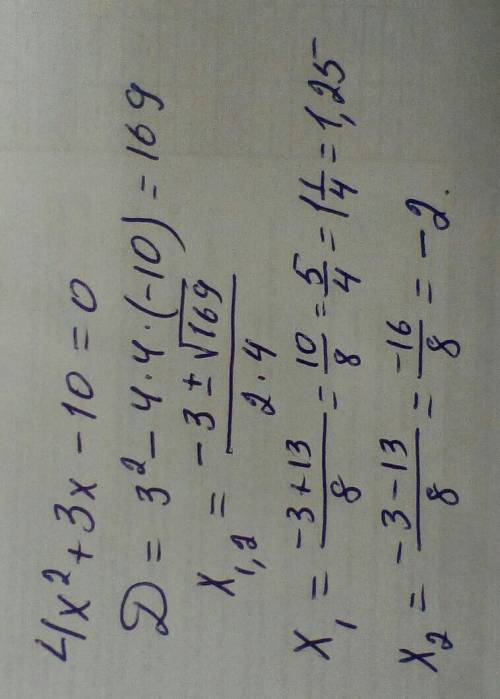 4x² + 3x - 10 = 0
D = 3² - 4·4·(-10) = 169
x₁,₂ = (-3 ± √169)/(2·4)
x₁ = (-3 + 13)/8 = 10/8 = 5/4 = 1 1/4 = 1,25
x₂ = (-3 - 13)/8 = -16/8 = -2.